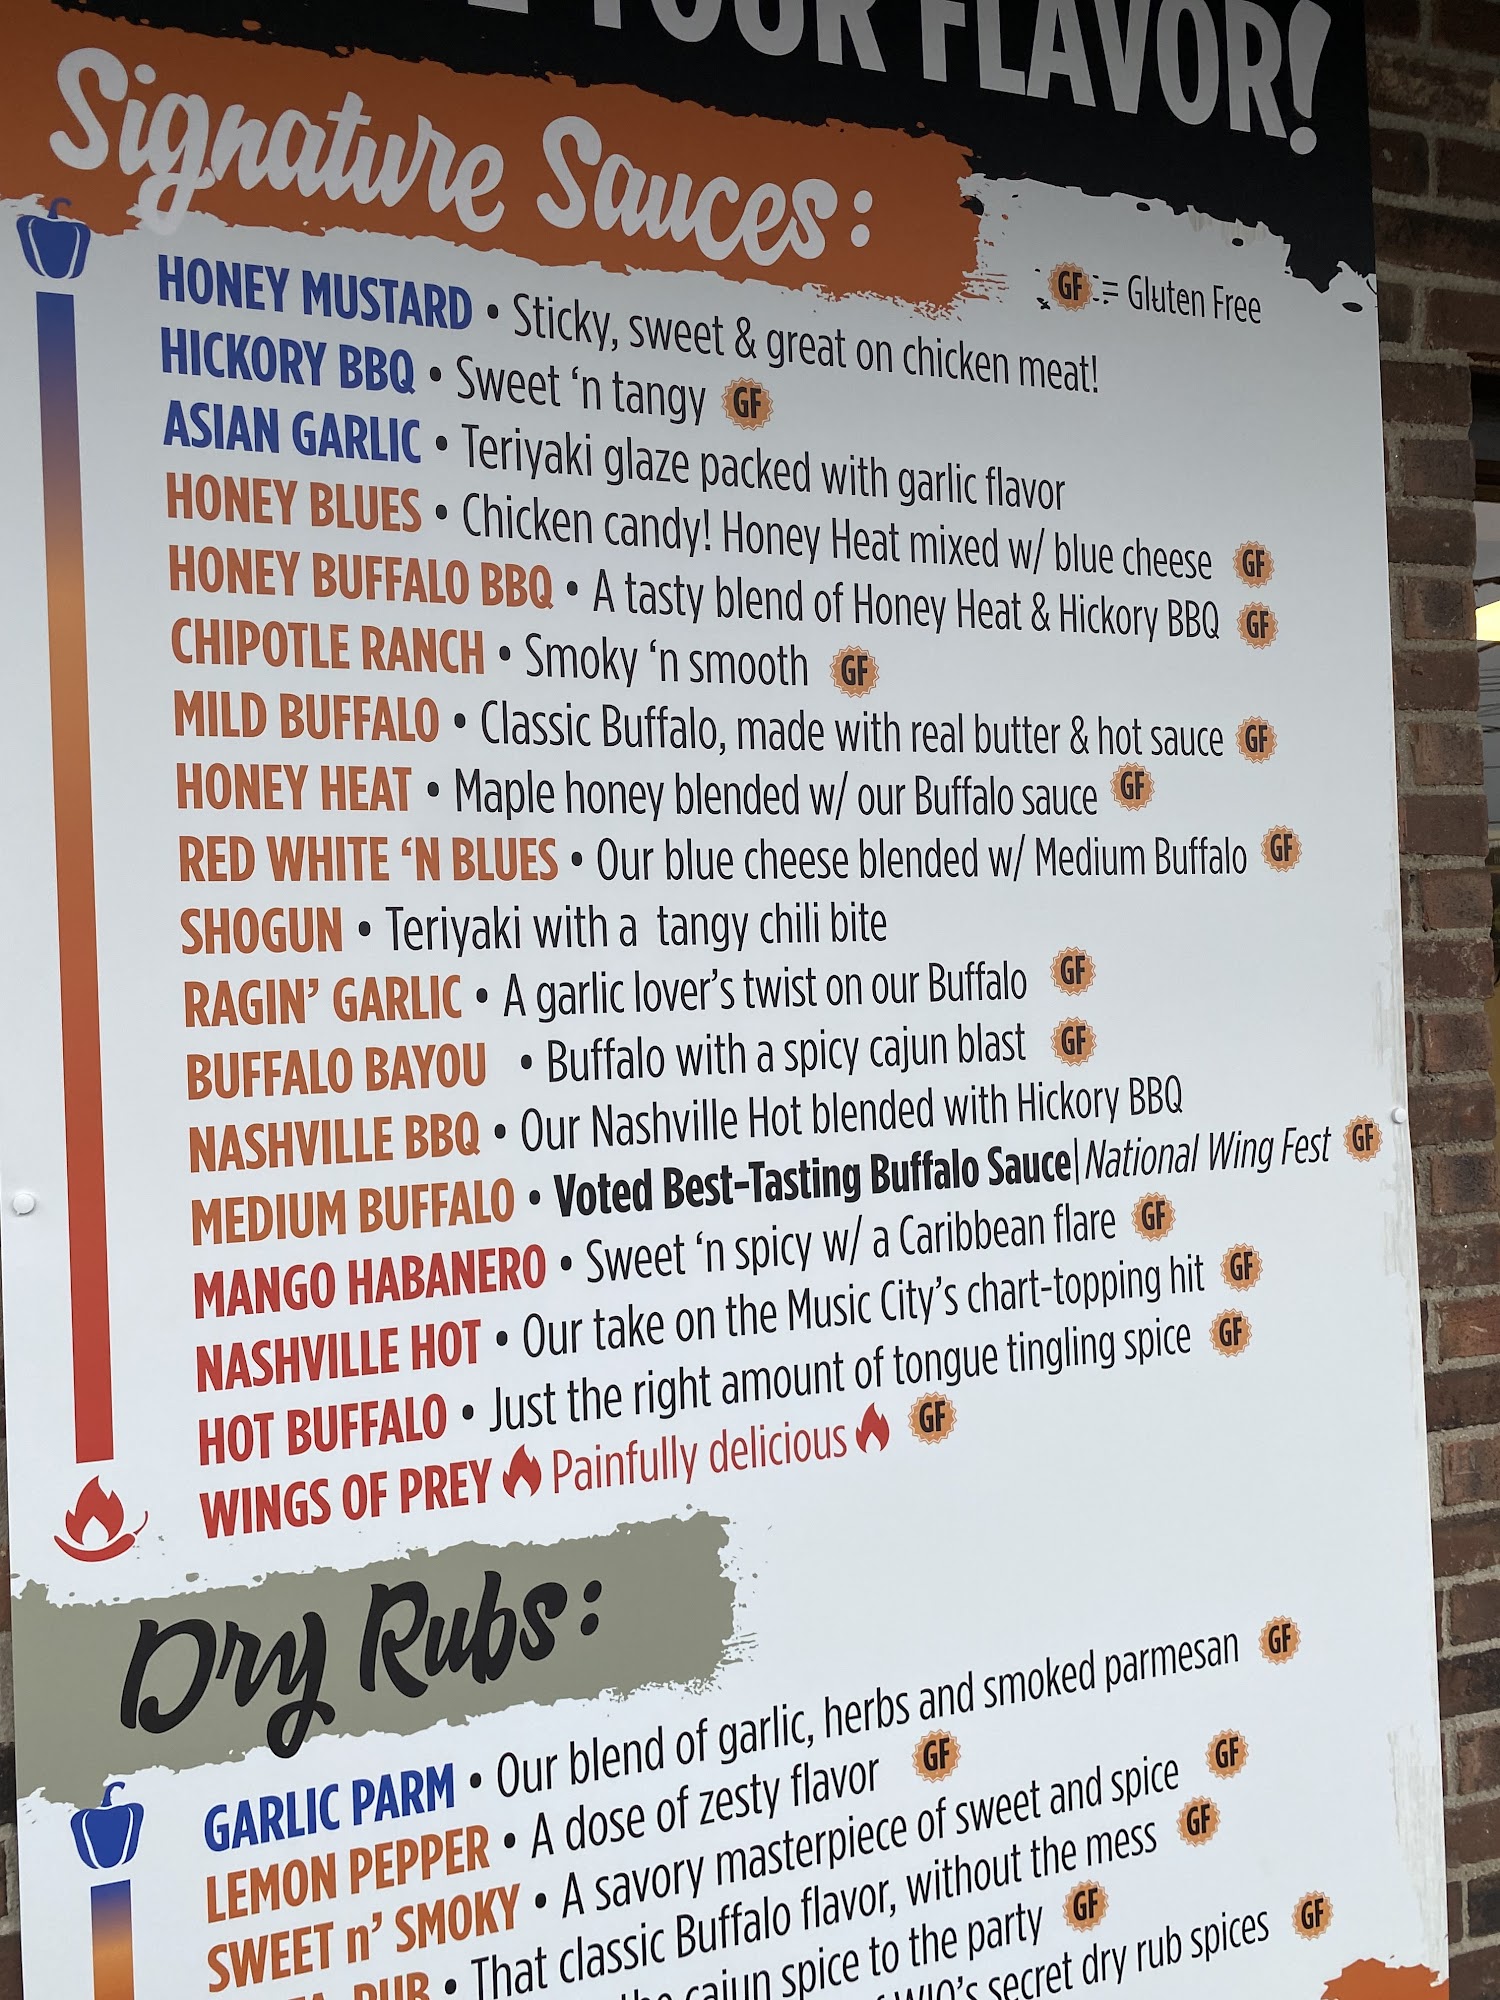 YOUR FLAVOR!
Signature Sauces:
GF = Gluten Free
HONEY MUSTARD • Sticky, sweet & great on chicken meat!
HICKORY BBQ • Sweet ‘n tangy GF
ASIAN GARLIC • Teriyaki glaze packed with garlic flavor
HONEY BLUES • Chicken candy! Honey Heat mixed w/ blue cheese GF
HONEY BUFFALO BBQ • A tasty blend of Honey Heat & Hickory BBQ GF
CHIPOTLE RANCH • Smoky ‘n smooth GF
MILD BUFFALO • Classic Buffalo, made with real butter & hot sauce GF
HONEY HEAT • Maple honey blended w/ our Buffalo sauce GF
RED WHITE ‘N BLUES • Our blue cheese blended w/ Medium Buffalo GF
SHOGUN • Teriyaki with a tangy chili bite
RAGIN’ GARLIC • A garlic lover’s twist on our Buffalo GF
BUFFALO BAYOU • Buffalo with a spicy cajun blast GF
NASHVILLE BBQ • Our Nashville Hot blended with Hickory BBQ
MEDIUM BUFFALO • Voted Best-Tasting Buffalo Sauce| National Wing Fest GF
MANGO HABANERO • Sweet ‘n spicy w/ a Caribbean flare GF
NASHVILLE HOT • Our take on the Music City’s chart-topping hit GF
HOT BUFFALO • Just the right amount of tongue tingling spice GF
WINGS OF PREY Painfully delicious GF
Dry Rubs:
GARLIC PARM • Our blend of garlic, herbs and smoked parmesan GF
LEMON PEPPER • A dose of zesty flavor GF
SWEET n’ SMOKY • A savory masterpiece of sweet and spice GF
RUB • That classic Buffalo flavor, without the mess GF
cajun spice to the party GF
secret dry rub spices GF